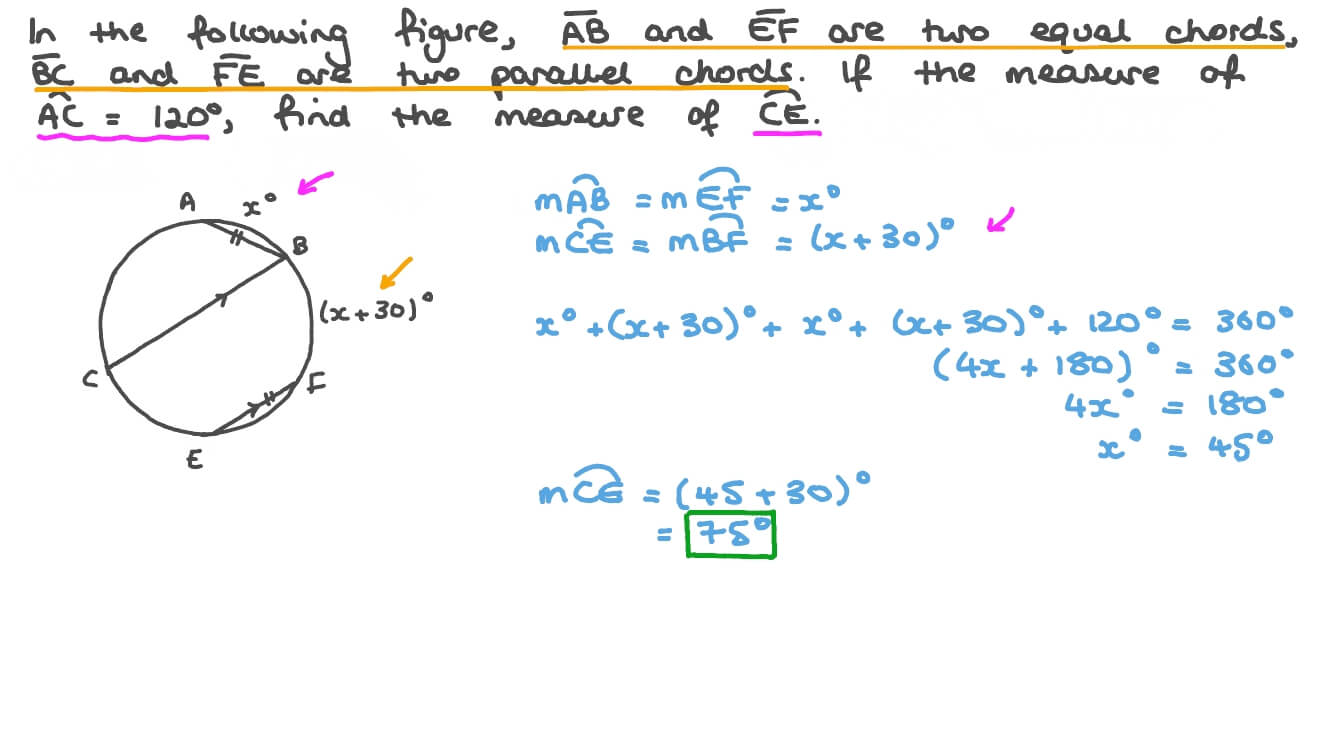 In the following figure, A͞B and E͞F are two equal chords,
B͞C and F͞E are two parallel chords. If the measure of
A͡C = 120°, find the measure of C͡E.
A x°
B
(x+30)°
C F
E
mA͡B = mE͡F = x°
mC͡E = mB͡F = (x+30)°
x° + (x+30)° + x° + (x+30)° + 120° = 360°
(4x + 180)° = 360°
4x° = 180°
x° = 45°
mC͡E = (45+30)°
= 75°